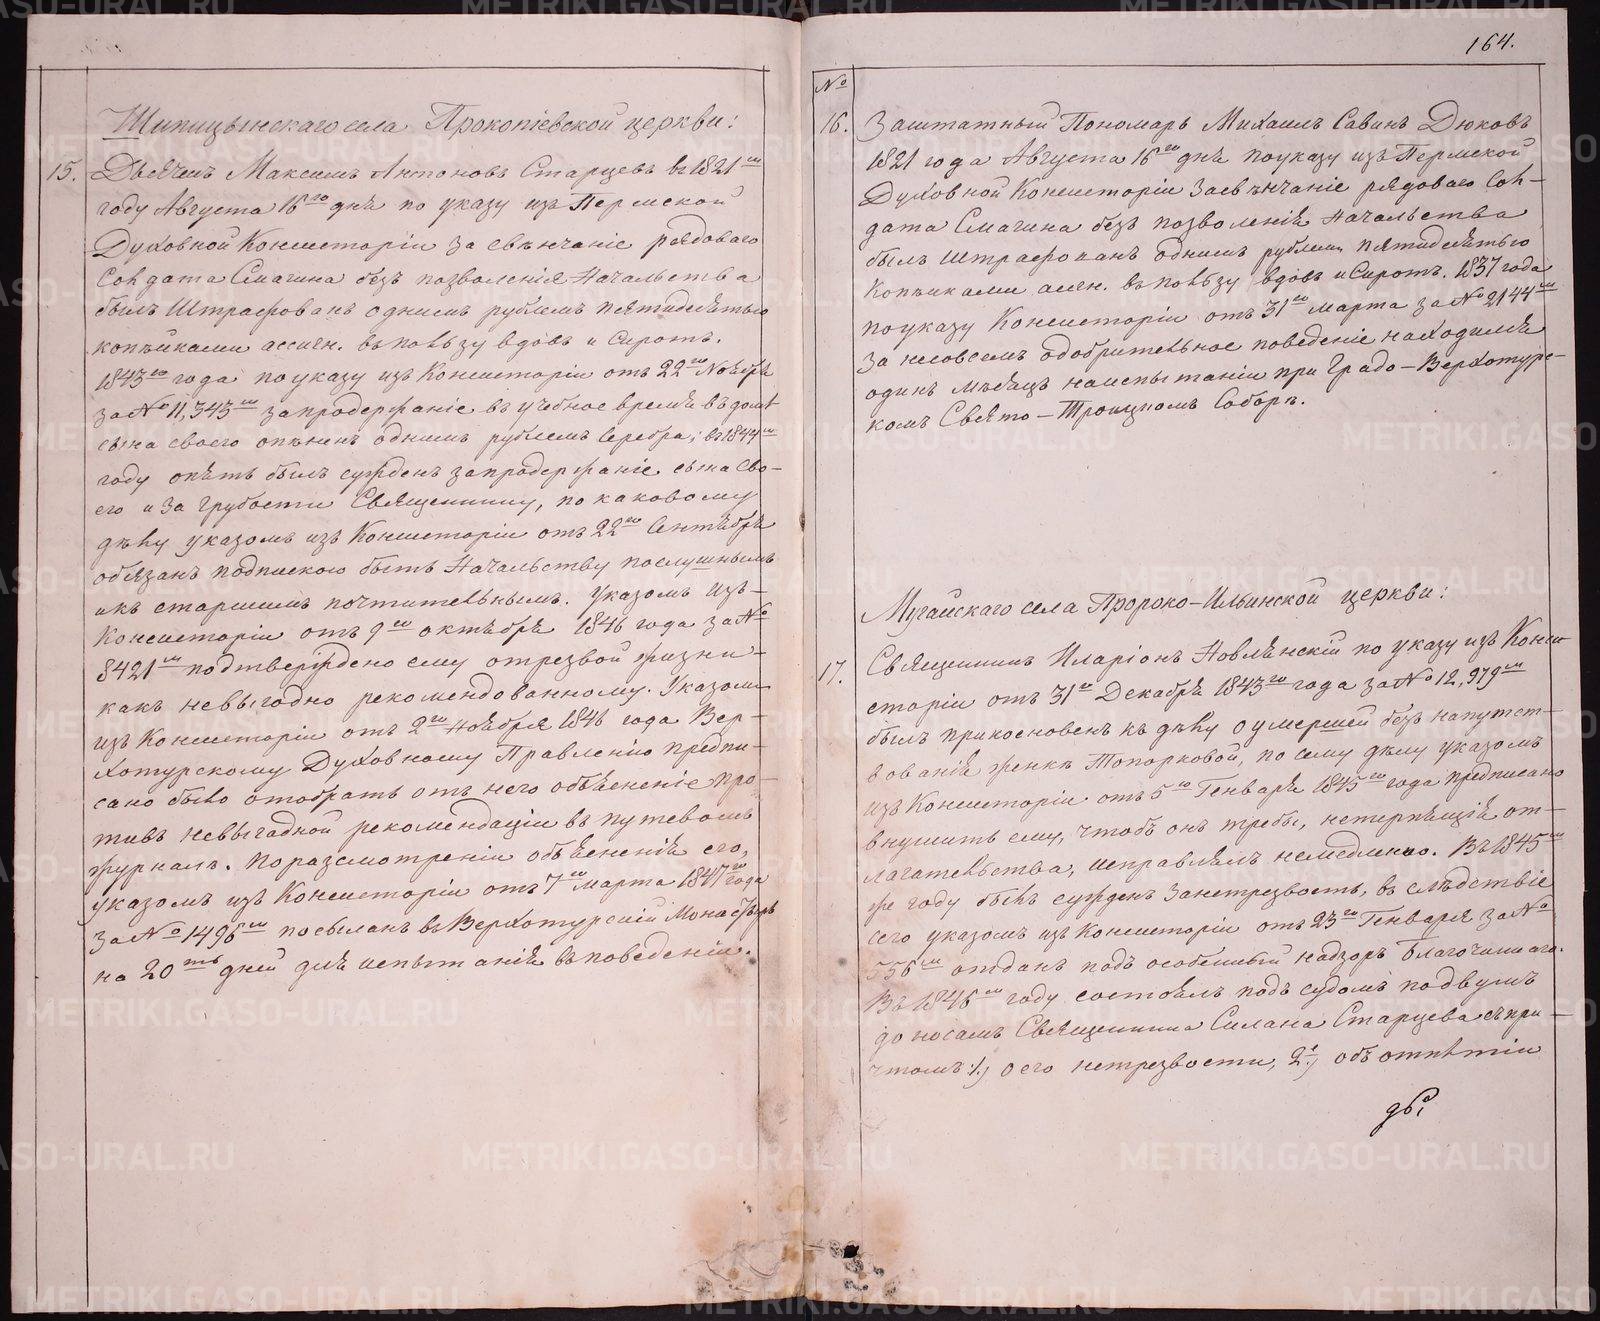 Шипицынскаго села Прокопіевской церкви:
15. Дьячекъ Максимъ Антоновъ Старцевъ въ 1821мъ
году Августа 16го дня по указу изъ Пермской
Духовной Консисторіи за свѣнчаніе рядоваго
Солдата Смагина безъ позволенія Начальства
былъ Штрафованъ однимъ рублемъ пятидесятью
копѣйками ассигн. въ пользу вдовъ и Сиротъ.
1843го года по указу изъ Консисторіи отъ 22го Ноября
за № 11,343мъ за продержаніе въ учебное время въ домѣ
сына своего опѣненъ однимъ рублемъ серебра; въ 1844мъ
году опять былъ сужденъ за продержаніе сына сво-
его и за грубости Священнику, по каковому
дѣлу указомъ изъ Консисторіи отъ 22го Сентября
обязанъ подпискою быть Начальству послушнымъ
и къ старшимъ почтительнымъ. Указомъ изъ
Консисторіи отъ 9го октября 1846 года за №
8421мъ подтверждено ему о трезвой жизни
какъ невыгодно рекомендованному. Указомъ
изъ Консисторіи отъ 2го Ноября 1846 года Вер-
хотурскому Духовному Правленію предпи-
сано было отобрать отъ него объясненіе про-
тивъ невыгодной рекомендаціи въ путевомъ
журналѣ. По разсмотреніи объясненія его,
указомъ изъ Консисторіи отъ 7го марта 1847го года
за № 1496мъ посыланъ въ Верхотурскій Монастырь
на 20ть дней для испытанія въ поведеніи.
164.
№
16. Заштатный Пономарь Михаилъ Савинъ Дюковъ
1821 года Августа 16го дня по указу изъ Пермской
Духовной Консисторіи за свѣнчаніе рядоваго Сол-
дата Смагина безъ позволенія Начальства
былъ штрафованъ однимъ рублемъ пятидесятью
копѣйками ассигн. въ пользу вдовъ и Сиротъ. 1837 года
по указу Консисторіи отъ 31го марта за № 2144мъ
за несовсемъ одобрительное поведеніе находился
одинъ мѣсяцъ на испытаніи при Градо-Верхотурс-
комъ Свято-Троицкомъ Соборѣ.
Мугайскаго села Пророко-Ильинской церкви:
17. Священникъ Иларіонъ Новлянскій по указу изъ Конси-
сторіи отъ 31го Декабря 1843го года за № 12,979мъ
былъ прикосновенъ къ дѣлу о умершей безъ напутст-
вованія женкѣ Топорковой, по сему дѣлу указомъ
изъ Консисторіи отъ 5го Генваря 1845го года предписано
внушить ему, чтобъ онъ требы, нетерпящія от-
лагательства, исправлялъ немедленно. Въ 1845мъ
же году былъ сужденъ за нетрезвость, въ слѣдствіе
сего указомъ изъ Консисторіи отъ 23го Генваря за №
556мъ отданъ подъ особенный надзоръ Благочиннаго.
Въ 1846мъ году состоялъ подъ судомъ по двумъ
доносамъ Священника Силана Старцева съ при-
чтомъ: 1.) о его нетрезвости, 2.) объ отпѣтіи